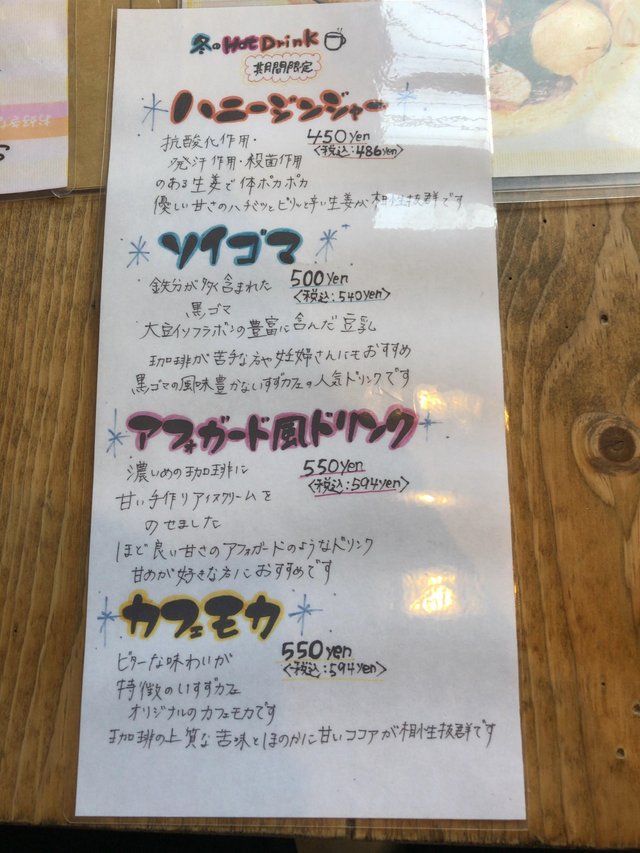 冬のHot Drink
期間限定
ハニージンジャー
450yen
<税込:486yen>
抗酸化作用・
発汗作用・殺菌作用
のある生姜で体ポカポカ
優しい甘さのハチミツとピリッと辛い生姜が相性抜群です
ソイゴマ
500yen
<税込:540yen>
鉄分が多く含まれた
黒ゴマ
大豆イソフラボンの豊富に含んだ豆乳
珈琲が苦手な方や妊婦さんにもおすすめ
黒ゴマの風味豊かないすずカフェの人気ドリンクです
アフォガード風ドリンク
550yen
<税込:594yen>
濃いめの珈琲に
甘い手作りアイスクリームを
のせました
ほど良い甘さのアフォガードのようなドリンク
甘めが好きな方におすすめです
カフェモカ
550yen
<税込:594yen>
ビターな味わいが
特徴のいすずカフェ
オリジナルのカフェモカです
珈琲の上質な苦味とほのかに甘いココアが相性抜群です
お好きな